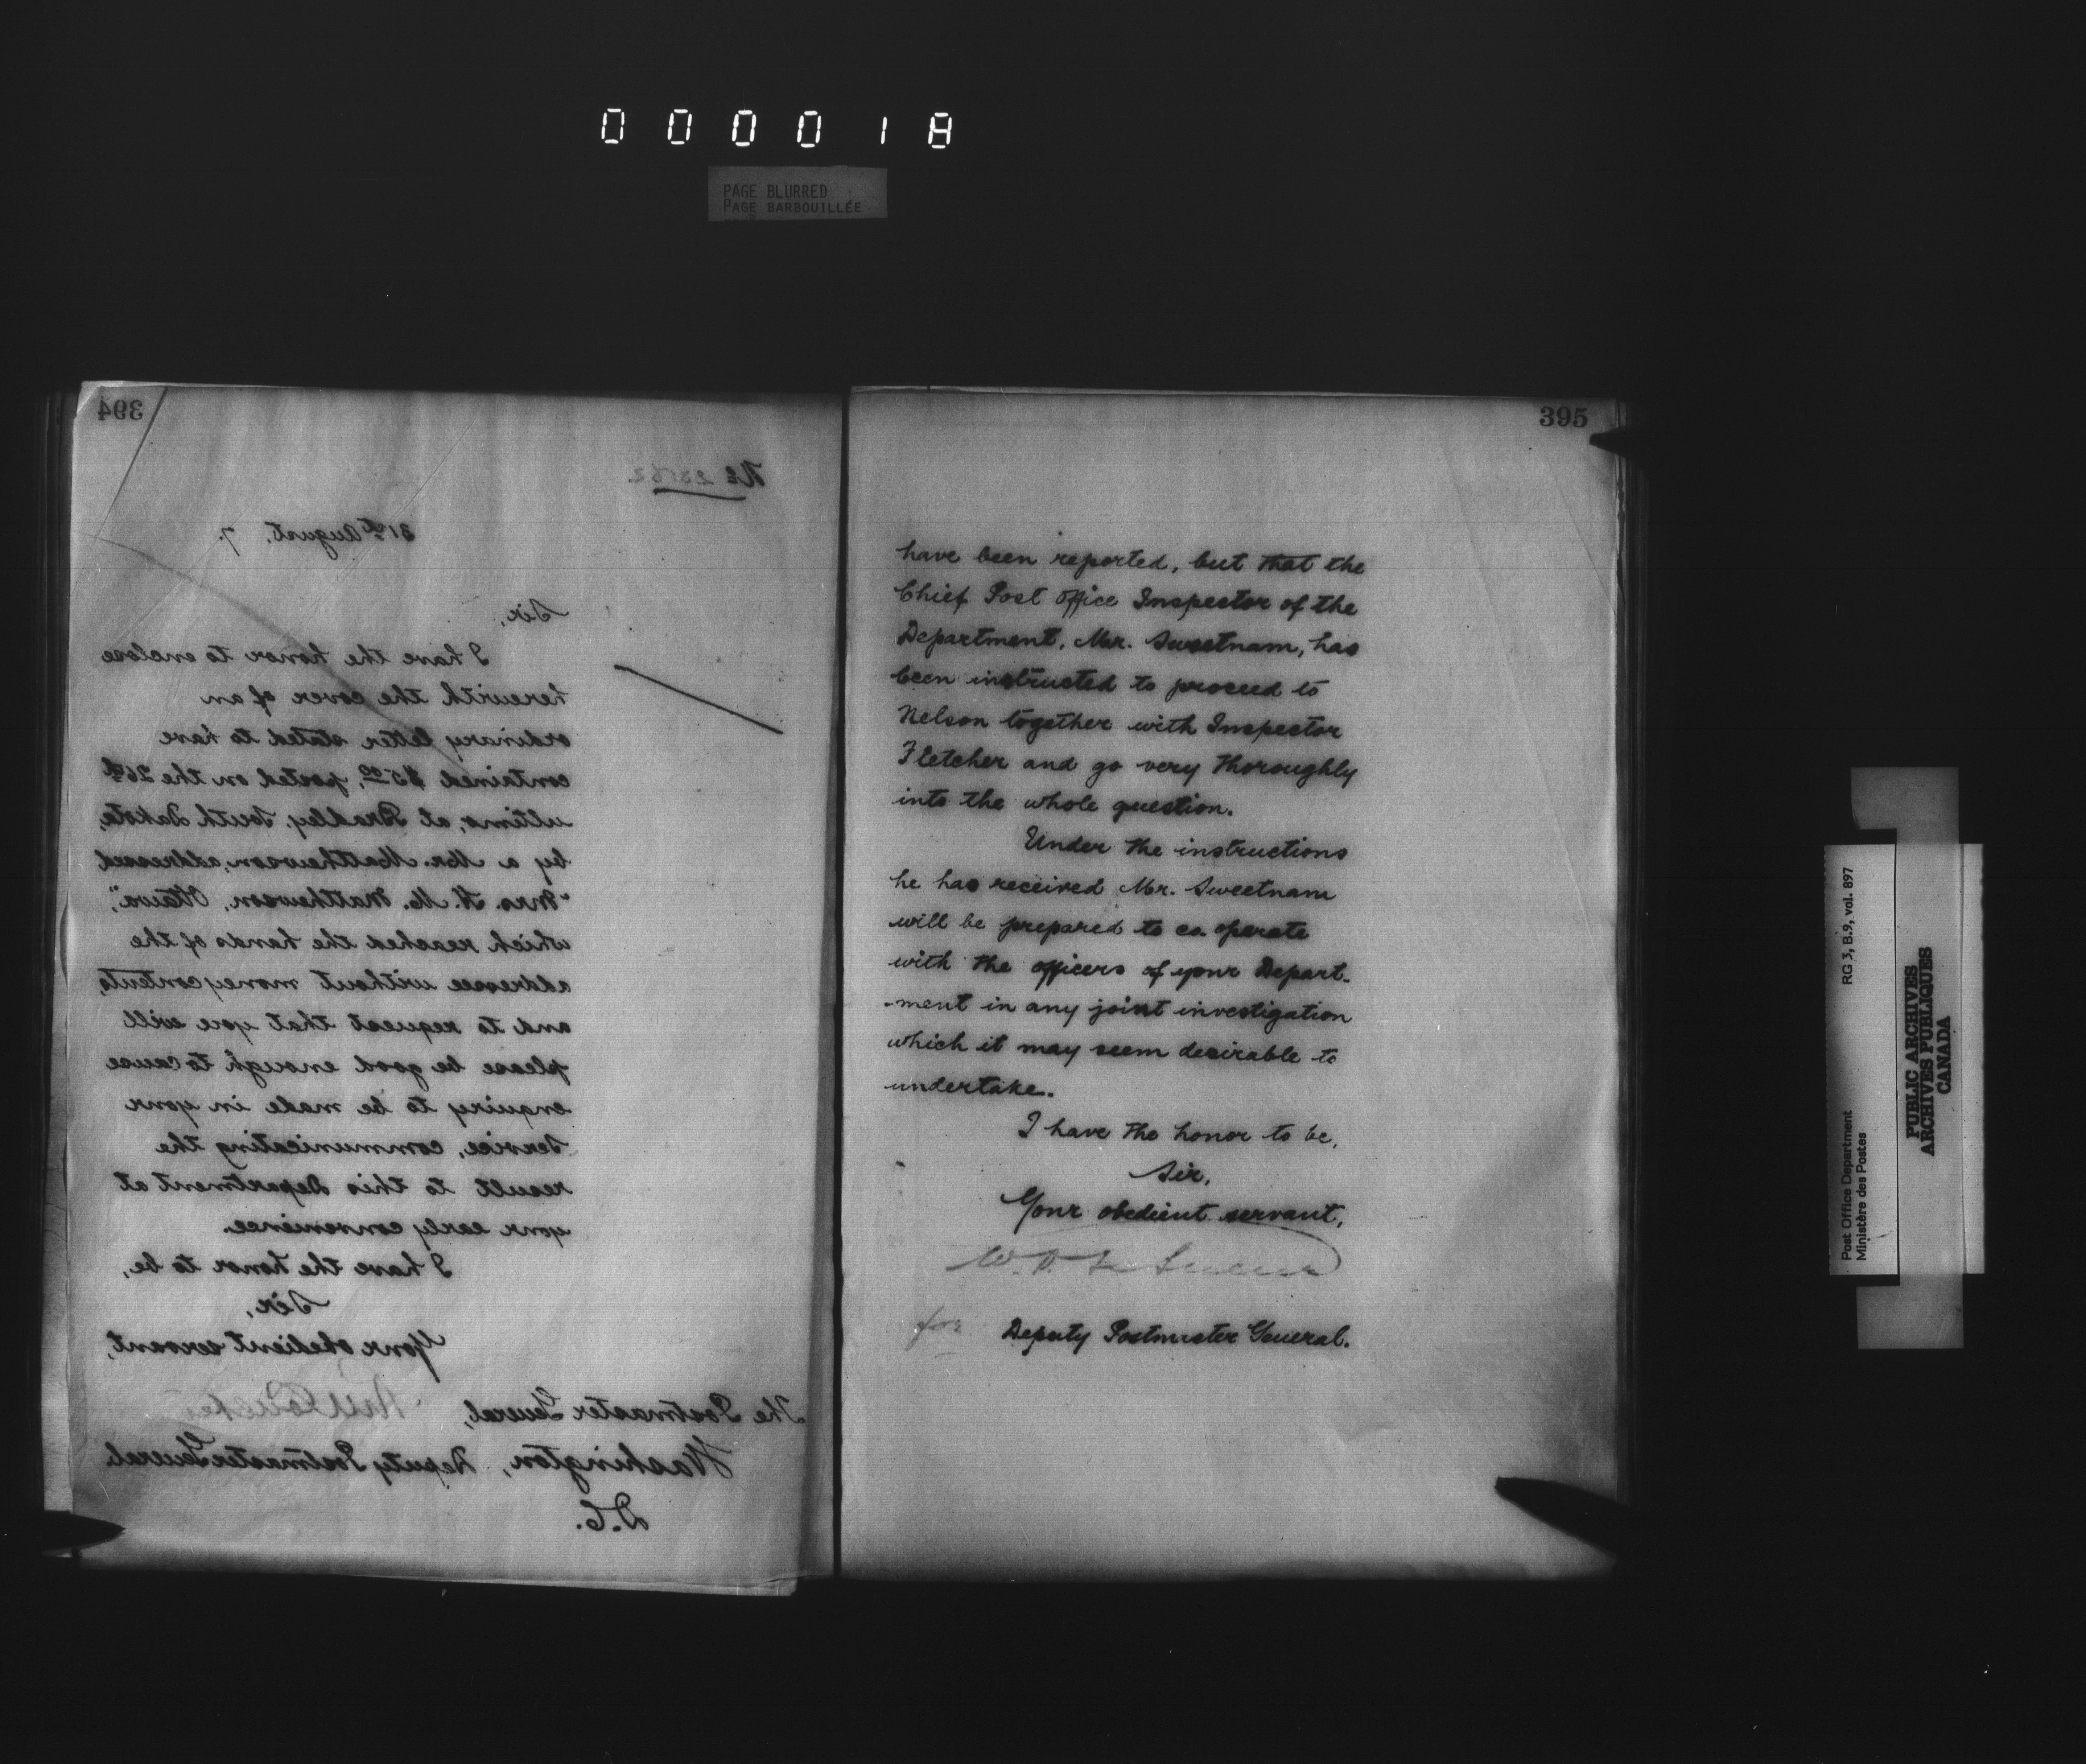 000018
PAGE BLURRED
PAGE BARBOUILLÉE
394
No
31st August, 7.
Sir,
I have the honor to enclose
herewith the cover of an
ordinary letter stated to have
contained $5.00, posted on the 26th
ultimo, at Bradley, South Dakota,
by a Mr. Matthewson, addressed
"Mrs. H. M. Matthewson, Ottawa",
which reached the hands of the
addressee without money contents,
and to request that you will
please be good enough to cause
enquiry to be made in your
Service, communicating the
result to this Department at
your early convenience.
I have the honor to be,
Sir,
Your obedient servant,
The Postmaster General,
Washington, Deputy Postmaster General.
D.C.
395
have been reported, but that the
Chief Post Office Inspector of the
Department, Mr. Sweetnam, has
been instructed to proceed to
Nelson together with Inspector
Fletcher and go very thoroughly
into the whole question.
Under the instructions
he has received Mr. Sweetnam
will be prepared to co.operate
with the officers of your Depart-
-ment in any joint investigation
which it may seem desirable to
undertake.
I have the honor to be,
Sir,
Your obedient servant,
W. D. Le Sueur
for Deputy Postmaster General.
Post Office Department RG 3, B.9, vol. 897
Ministère des Postes
PUBLIC ARCHIVES
ARCHIVES PUBLIQUES
CANADA